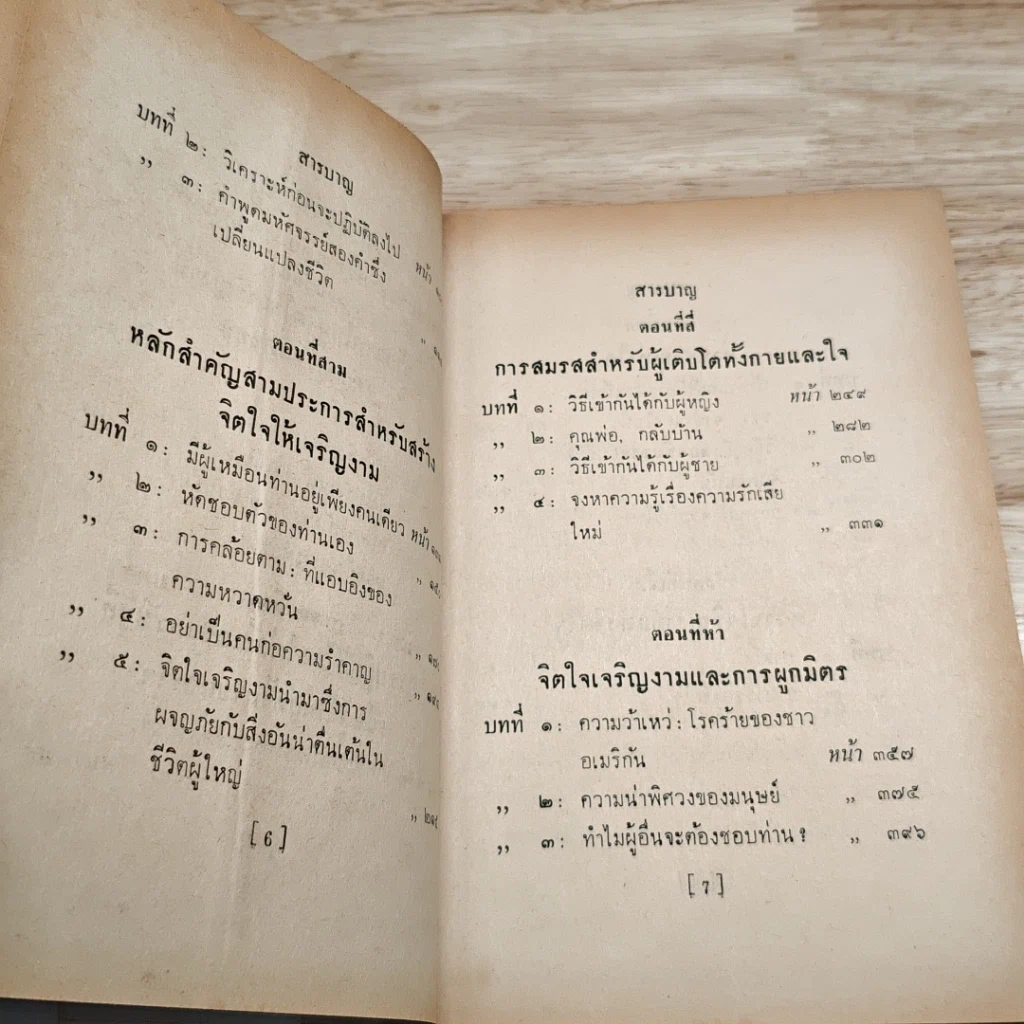 สารบาญ
บทที่ ๒: วิเคราะห์ก่อนจะปฏิบัติลงไป หน้า
,, ๓: คำพูดมหัศจรรย์สองคำซึ่ง
เปลี่ยนแปลงชีวิต ,,
ตอนที่สาม
หลักสำคัญสามประการสำหรับสร้าง
จิตใจให้เจริญงาม
บทที่ ๑: มีผู้เหมือนท่านอยู่เพียงคนเดียว หน้า
,, ๒: หัดชอบตัวของท่านเอง ,,
,, ๓: การคล้อยตาม: ที่แอบอิงของ
ความหวาดหวั่น ,,
,, ๔: อย่าเป็นคนก่อความรำคาญ ,,
,, ๕: จิตใจเจริญงามนำมาซึ่งการ
ผจญภัยกับสิ่งอันน่าตื่นเต้นใน
ชีวิตผู้ใหญ่ ,,
[6]
สารบาญ
ตอนที่สี่
การสมรสสำหรับผู้เติบโตทั้งกายและใจ
บทที่ ๑: วิธีเข้ากันได้กับผู้หญิง หน้า ๒๔๙
,, ๒: คุณพ่อ, กลับบ้าน ,, ๒๘๒
,, ๓: วิธีเข้ากันได้กับผู้ชาย ,, ๓๐๒
,, ๔: จงหาความรู้เรื่องความรักเสีย
ใหม่ ,, ๓๓๑
ตอนที่ห้า
จิตใจเจริญงามและการผูกมิตร
บทที่ ๑: ความว้าเหว่: โรคร้ายของชาว
อเมริกัน หน้า ๓๕๗
,, ๒: ความน่าพิศวงของมนุษย์ ,, ๓๗๕
,, ๓: ทำไมผู้อื่นจะต้องชอบท่าน? ,, ๓๙๖
[7]